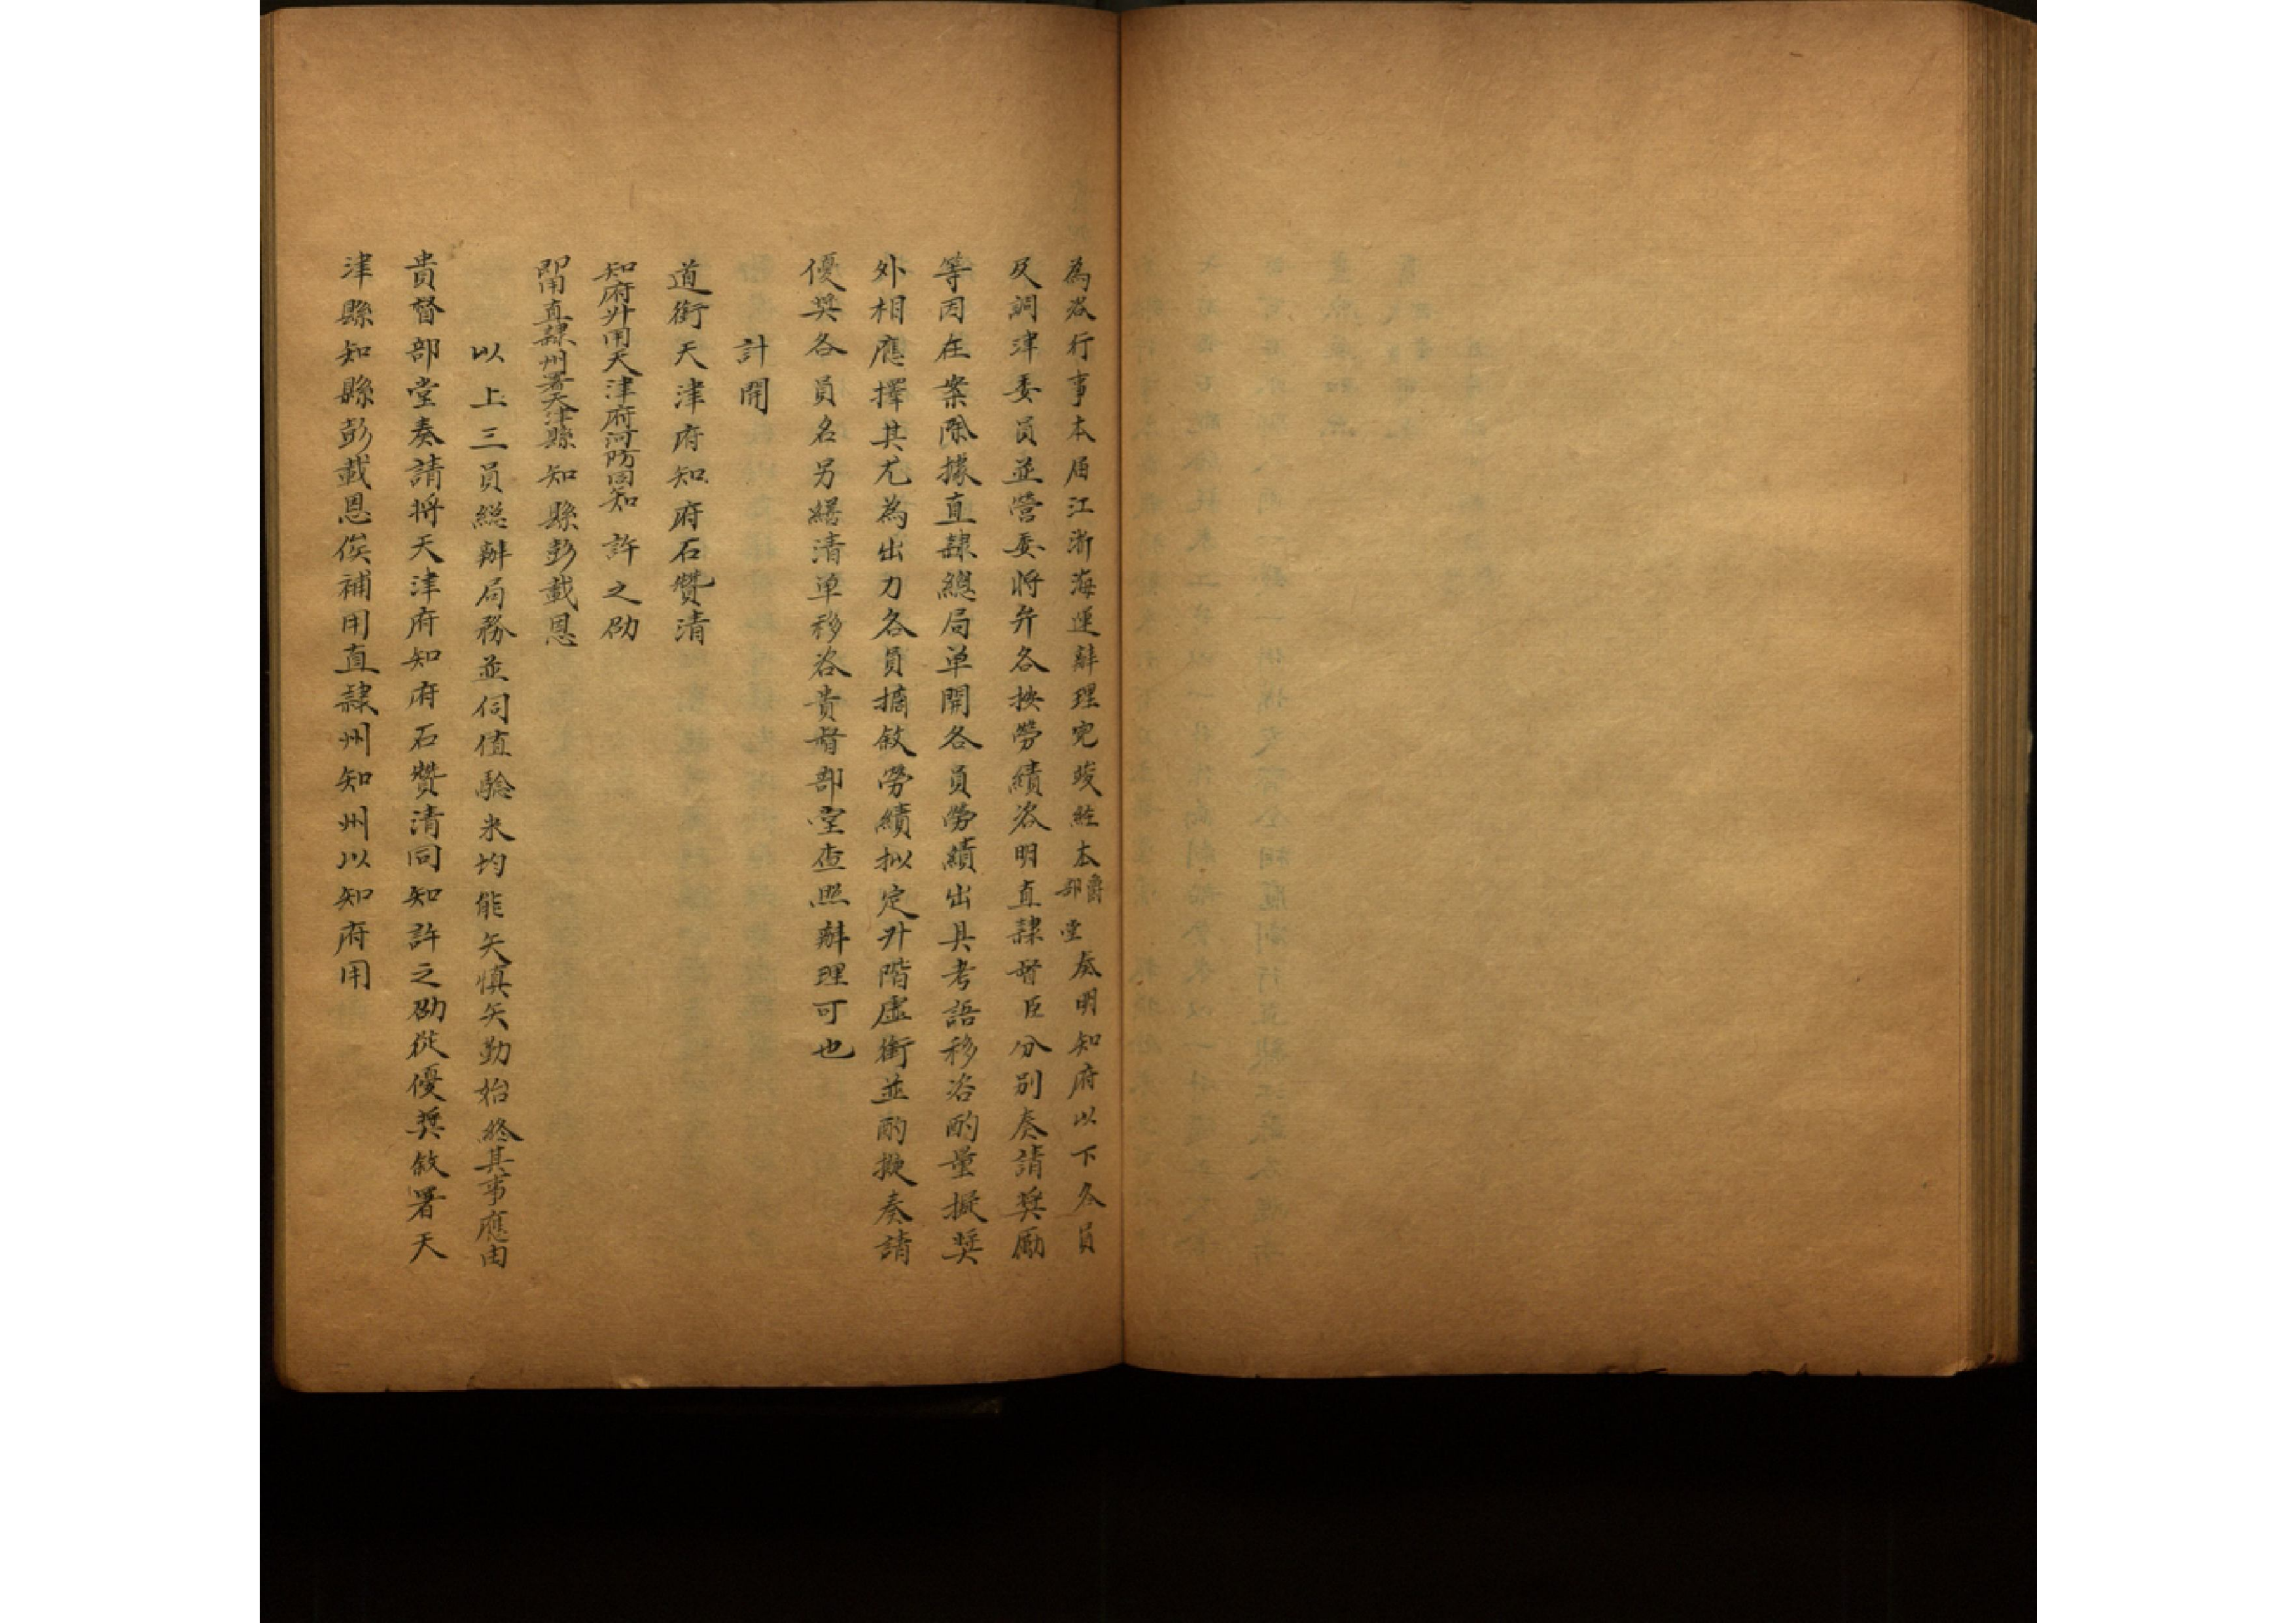 為咨行事本屆江浙海運辦理完竣經本爵部堂奏明知府以下各員
及調津委員並營委將弁各按勞績咨明直隸督臣分別奏請獎勵
等因在案除據直隸總局单開各員勞績出具考語移咨酌量擬獎
外相應擇其尤為出力各員摘敘勞績拟定升階虛銜並酌擬奏請
優奬各員名另繕清单移咨貴督部堂查照辦理可也
計開
道銜天津府知府石贊清
知府升用天津府河防同知許之劭
即用直隸州署天津縣知縣彭載恩
以上三員総辦局務並伺值驗米均能矢慎矢勤始終其事應由
貴督部堂奏請将天津府知府石贊清同知許之劭從優奬敘署天
津縣知縣彭載恩俟補用直隸州知州以知府用